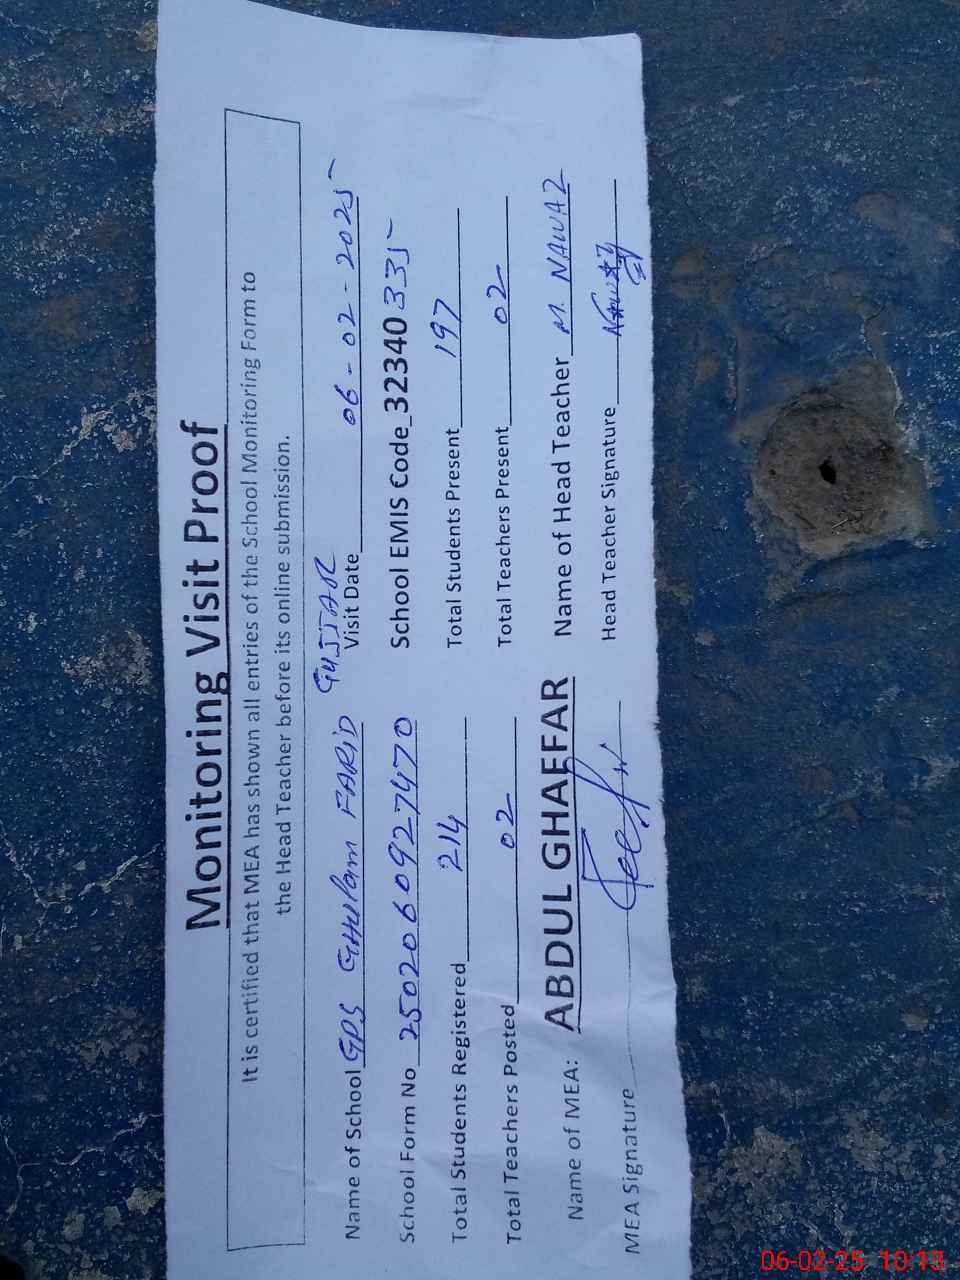 Monitoring Visit Proof
It is certified that MEA has shown all entries of the School Monitoring Form to
the Head Teacher before its online submission.
Name of School GPS GHULAM FARID GUJJAR Visit Date 06-02-2025
School Form No 2502060927470 School EMIS Code 32340335
Total Students Registered 214 Total Students Present 197
Total Teachers Posted 02 Total Teachers Present 02
Name of MEA: ABDUL GHAFFAR Name of Head Teacher M. NAWAZ
MEA Signature Head Teacher Signature
06-02-25 10:13